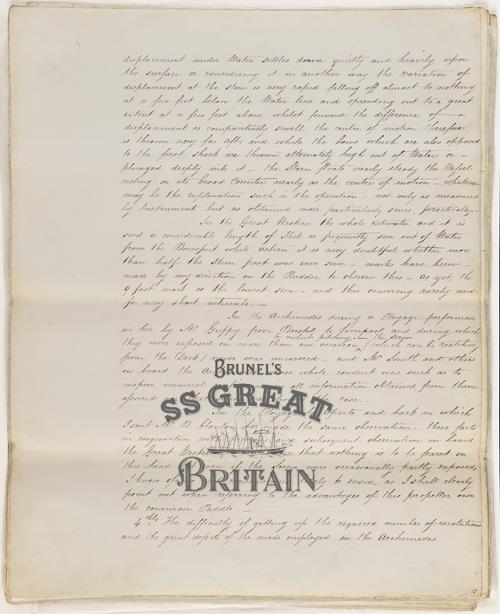 displacement under Water settles down quietly and heavily upon
the surface or considering it in another way the variation of
displacement at the stern is very rapid falling off almost to nothing
at a few feet below the Water line and spreading out to a great
extent at a few feet above whilst forward the difference of
displacement is comparitively small the centre of motion therefore
is thrown very far aft, and while the bows which are also opposed
to the first shock are thrown alternately high out of Water or
plunged deeply into it – the Stern floats nearly steady the Vessel
resting on its broad Counter nearly as the centre of motion – whatever
may be the explanation such is the operation – not only as measured
by Instrument but as obtained more particularly since, practically.
In the Great Western the whole cutwater and it is
said a considerable length of Keel is frequently seen out of Water
from the Bowsprit while astern it is very doubtful whether more
than half the Stern post was ever seen – marks have been
made by my direction on the Rudder to observe this – as yet, the
9 foot mark is the lowest seen – and this occurring rarely and
for very short intervals. –
In the Archimedes during a Voyage performed
in her by Mr Guppy from Bristol to Liverpool and during which
they were exposed on more than one occasion to violent pitching the screw (which can be watched
from the Deck) never was uncovered – and Mr Smith and others
on board the whose whole conduct was such as to
inspire all information obtained from them
assured the case. –
In the Voyage to Oporto and back in which
I sent Mr B. made the same observation – these facts
in conjunction subsequent observation on board
the Great Western that nothing is to be feared on
this head even if the Screw were occasionally partly exposed,
I know of to ensue, as I shall clearly
point out when referring to the advantages of this propeller over
the common Paddle –
4thly The difficulty of getting up the required number of revolutions
and the great defects of the mode employed in the Archimedes
BRUNEL'S
SS GREAT
BRITAIN